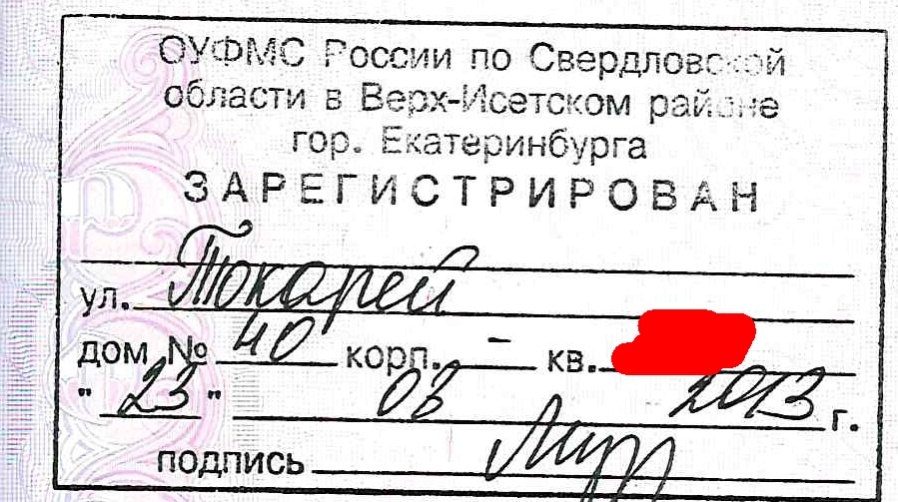 ОУФМС России по Свердловской
области в Верх-Исетском районе
гор. Екатеринбурга
ЗАРЕГИСТРИРОВАН
ул. Токарей
дом № 40 корп. - кв.
"23" 08 2013 г.
подпись